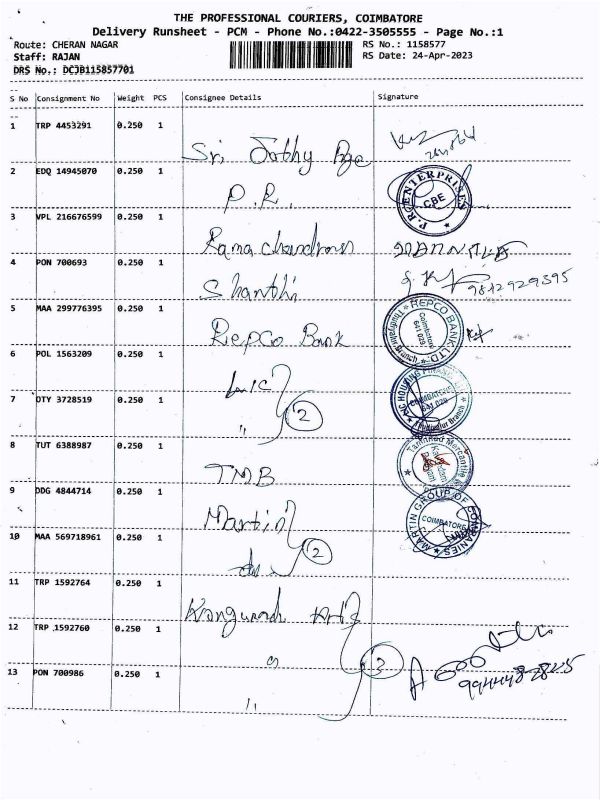 THE PROFESSIONAL COURIERS, COIMBATORE
Delivery Runsheet - PCM - Phone No.:0422-3505555 - Page No.:1
Route: CHERAN NAGAR RS No.: 1158577
Staff: RAJAN RS Date: 24-Apr-2023
DRS No.: DCJB115857701
S No Consignment No Weight PCS Consignee Details Signature
1 TRP 4453291 0.250 1 Sri
2 EDQ 14945070 0.250 1 P.R. P.R ENTERPRISES CBE
3 VPL 216676599 0.250 1 Ramachandran
4 PON 700693 0.250 1 Shanthi
5 MAA 299776395 0.250 1 Repco Bank REPCO BANK LTD. Coimbatore 641 029 Branch
6 POL 1563209 0.250 1 LIC
7 DTY 3728519 0.250 1 " 2 HOUSING COIMBATORE 641 029 Branch
8 TUT 6388987 0.250 1 TMB Tamilnad Mercantile
9 DDG 4844714 0.250 1 Martin
10 MAA 569718961 0.250 1 2 MARTIN GROUP OF COMPANIES COIMBATORE
11 TRP 1592764 0.250 1
12 TRP 1592760 0.250 1 " 3
13 PON 700986 0.250 1 "